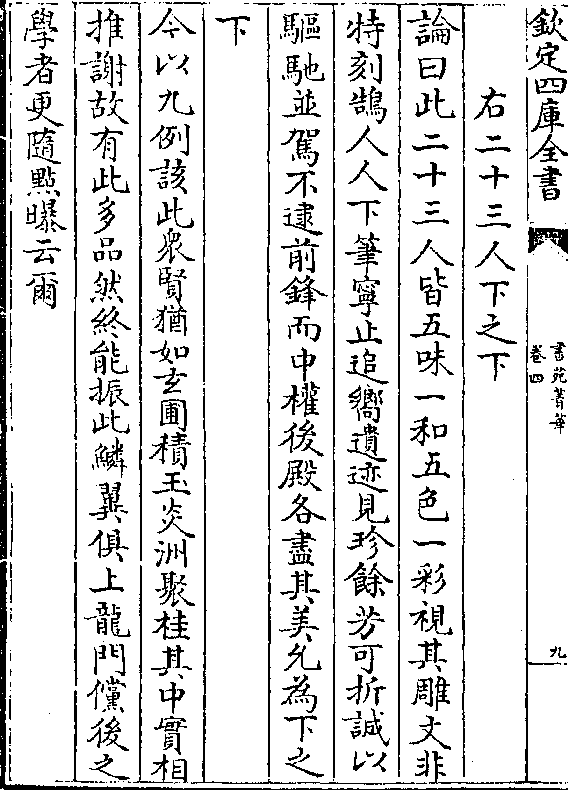 欽定四庫全書
書苑菁華
卷四
九
右二十三人下之下
論曰此二十三人皆五味一和五色一彩視其雕文非
特刻鵠人人下筆寧止追嚮遺迹見珍餘芳可折誠以
驅馳並駕不逮前鋒而中權後殿各盡其美允為下之
下
今以九例該此衆賢猶如玄圃積玉炎洲聚桂其中實相
推謝故有此多品然終能振此鱗翼俱上龍門儻後之
學者更隨點曝云爾